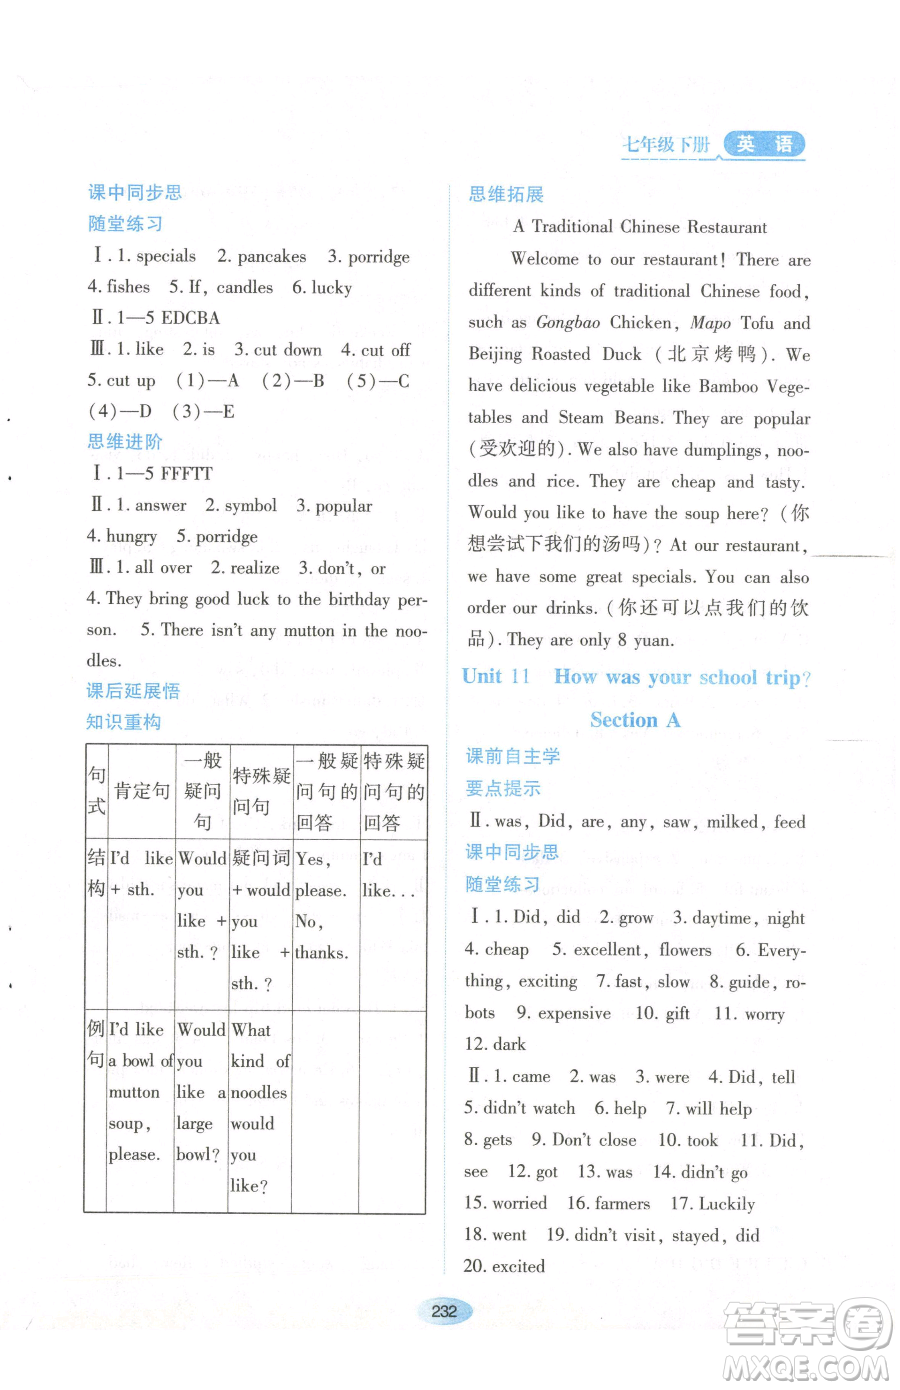 七年级下册 英语
课中同步思
随堂练习
Ⅰ. 1. specials 2. pancakes 3. porridge
4. fishes 5. If, candles 6. lucky
Ⅱ. 1—5 EDCBA
Ⅲ. 1. like 2. is 3. cut down 4. cut off
5. cut up (1)—A (2)—B (5)—C
(4)—D (3)—E
思维进阶
Ⅰ. 1—5 FFFTT
Ⅱ. 1. answer 2. symbol 3. popular
4. hungry 5. porridge
Ⅲ. 1. all over 2. realize 3. don't, or
4. They bring good luck to the birthday per-
son. 5. There isn't any mutton in the noo-
dles.
课后延展悟
知识重构
句式 肯定句 一般疑问句 特殊疑问句 一般疑问句的回答 特殊疑问句的回答
结构 I'd like + sth. Would you like + sth. ? 疑问词 + would you like + sth. ? Yes, please. No, thanks. I'd like...
例句 I'd like a bowl of mutton soup, please. Would you like a large bowl? What kind of noodles would you like?
思维拓展
A Traditional Chinese Restaurant
Welcome to our restaurant! There are
different kinds of traditional Chinese food,
such as Gongbao Chicken, Mapo Tofu and
Beijing Roasted Duck (北京烤鸭). We
have delicious vegetable like Bamboo Vege-
tables and Steam Beans. They are popular
(受欢迎的). We also have dumplings, noo-
dles and rice. They are cheap and tasty.
Would you like to have the soup here? (你
想尝试下我们的汤吗)? At our restaurant,
we have some great specials. You can also
order our drinks. (你还可以点我们的饮
品). They are only 8 yuan.
Unit 11 How was your school trip?
Section A
课前自主学
要点提示
Ⅱ. was, Did, are, any, saw, milked, feed
课中同步思
随堂练习
Ⅰ. 1. Did, did 2. grow 3. daytime, night
4. cheap 5. excellent, flowers 6. Every-
thing, exciting 7. fast, slow 8. guide, ro-
bots 9. expensive 10. gift 11. worry
12. dark
Ⅱ. 1. came 2. was 3. were 4. Did, tell
5. didn't watch 6. help 7. will help
8. gets 9. Don't close 10. took 11. Did,
see 12. got 13. was 14. didn't go
15. worried 16. farmers 17. Luckily
18. went 19. didn't visit, stayed, did
20. excited
232
答案圈
MXQE.COM